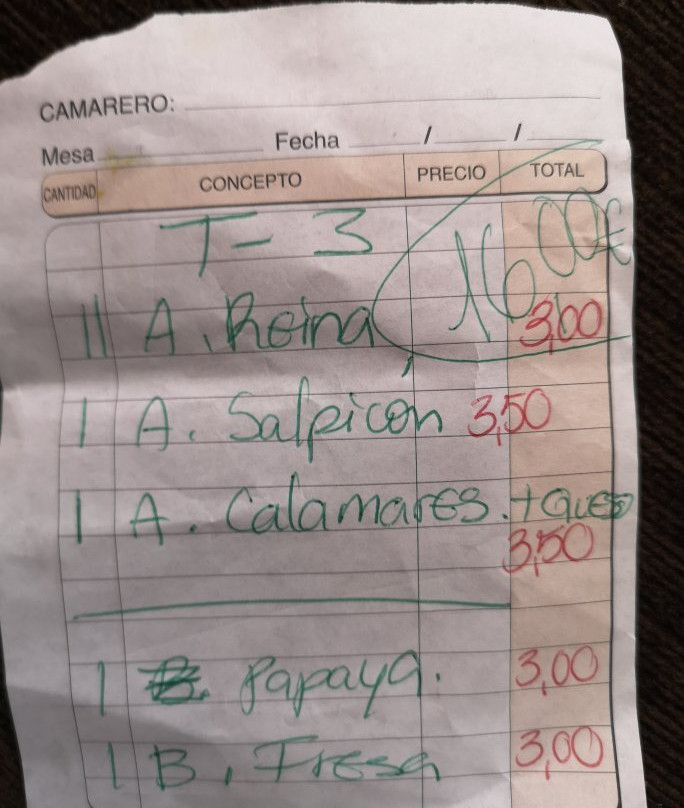 CAMARERO:
Mesa Fecha / /
CANTIDAD CONCEPTO PRECIO TOTAL
T-3 16,00€
II A. Reina 3,00
1 A. Salpicón 3,50
1 A. Calamares. + queso
3,50
1 Papaya. 3,00
1 B. Fresa 3,00